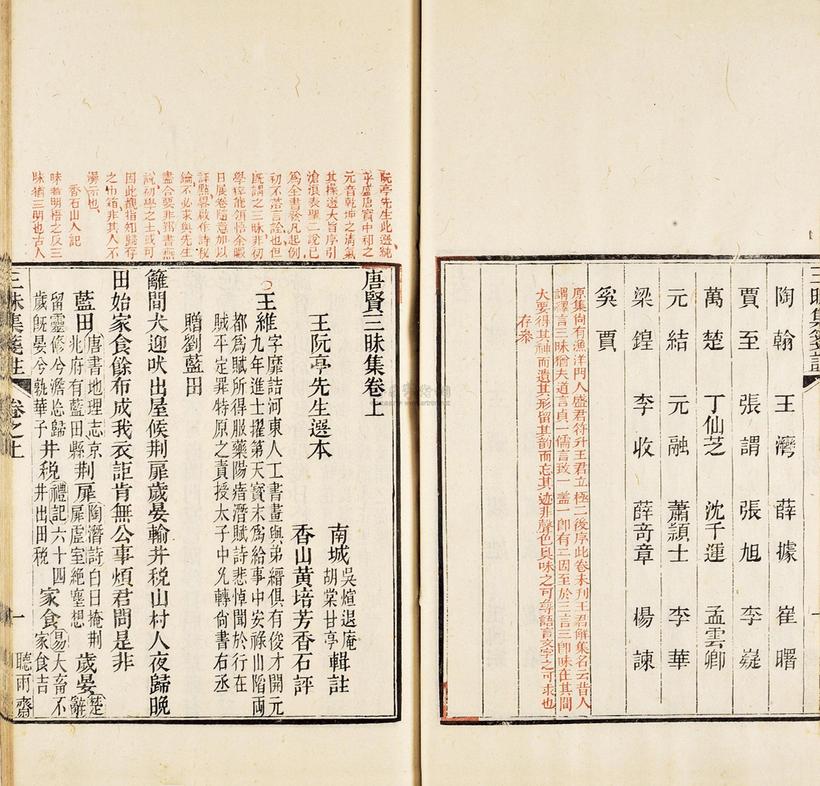 三昧集箋註
陶翰　王灣　薛據　崔曙
賈至　張謂　張旭　李嶷
萬楚　丁仙芝　沈千運　孟雲卿
元結　元融　蕭頴士　李華
梁鍠　李收　薛竒章　楊諫
奚賈
原集尚有漁洋門人盛君符升王君立極二後序此卷未刋王君解集名云昔人
謂釋言三昧猶夫道言貞一儒言致一葢一卽有二因至於三言三卽昧在其間
大要得其神而遺其形留其韵而忘其迹非聲色臭味之可尋語言文字之可求也
存叅
唐賢三昧集卷上
王阮亭先生選本
南城
吳煊退庵
胡棠甘亭
輯註
香山黄培芳香石評
王維
字摩詰河東人工書畫與弟縉俱有俊才開元
九年進士擢第天寳末爲給事中安祿山陷兩
都爲賊所得服藥陽瘖潛賦詩悲悼聞於行在
賊平定罪特原之責授太子中允轉尚書右丞
贈劉藍田
籬間犬迎吠出屋候荆扉歲晏輸井税山村人夜歸晩
田始家食餘布成我衣詎肯無公事煩君問是非
藍田
唐書地理志京
兆府有藍田縣
荆扉
陶潛詩白日掩荆
扉虛室絕塵想
歲晏
楚
離
留靈修兮澹忘歸
歲既晏兮孰華予
井税
禮記六十四
井出田税
家食
易大畜不
家食吉
三昧集箋註
卷之上
一
聽雨齋
阮亭先生此選純
乎盛唐寳中和之
元音乾坤之清氣
其操選大旨序引
滄浪表聖二說已
爲全書發凡起例
初不落言詮也但
既謂之三昧非初
學痒能領悟余暇
日展卷隨意加以
評點畧啟作詩徑
鑰不必束與先生
盡合要非鄙書燕
說初學之士或可
因此觀指知歸存
之巾箱非其人不
漫示也
香石山人記
昧者明悟之反三
昧猶三明也古人